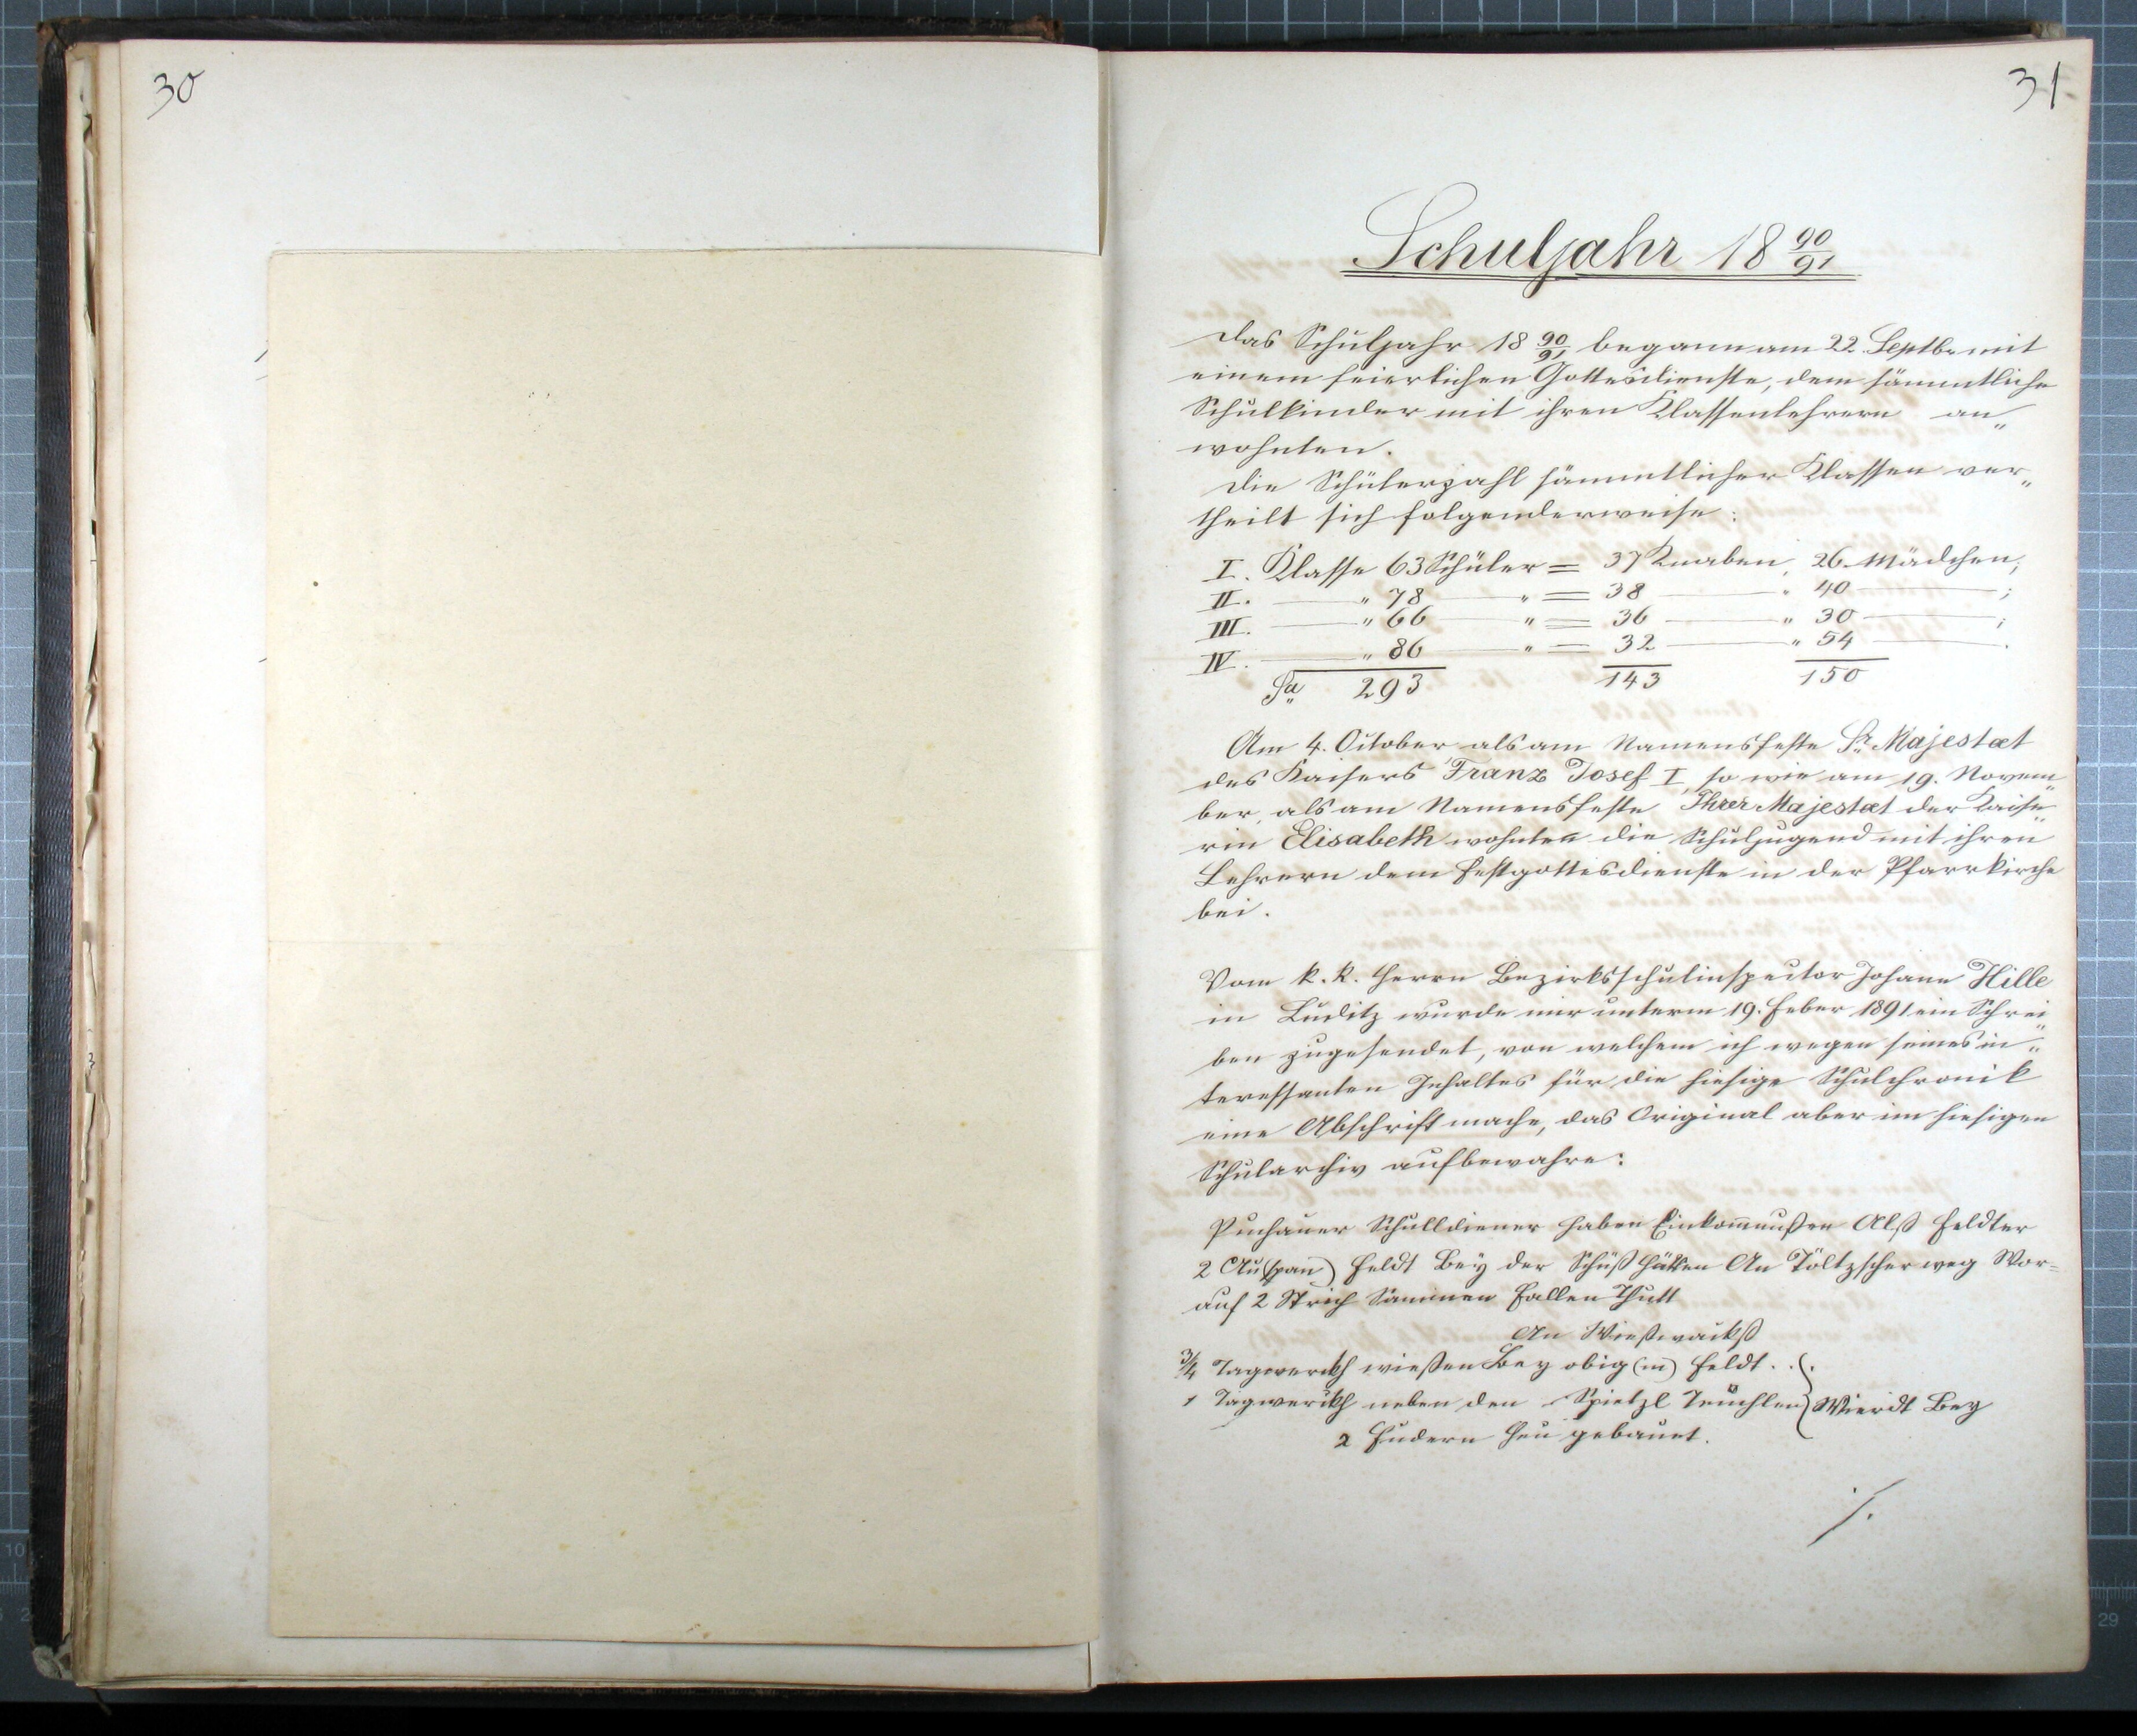 30
31
Schuljahr 18 90/91
Das Schuljahr 18 90/91 begann am 22. Septb. mit
einem feierlichen Gottesdienste, dem sämmtliche
Schulkinder mit ihren Klassenlehrern an„
wohnten.
Die Schülerzahl sämmtlicher Klassen ver„
theilt sich folgenderweise:
I. Klasse 63 Schüler = 37 Knaben, 26 Mädchen;
II. — " 78 — " = 38 — " 40 — ;
III. — " 66 — " = 36 — " 30 — ;
IV. — " 86 — " = 32 — " 54 — .
Sa 293 143 150
Am 4. October als am Namensfeste Sr. Majestæt
des Kaisers Franz Josef I, so wie am 19. Novem„
ber, als am Namensfeste Ihrer Majestæt der Kaise„
rin Elisabeth wohnten die Schuljugend mit ihren
Lehrern dem Festgottesdienste in der Pfarrkirche
bei.
Vom k. k. Herrn Bezirksschulinspector Johann Hille
in Luditz wurde mir unterm 19. Feber 1891 ein Schrei„
ben zugesendet, von welchem ich wegen seines in„
teressanten Inhaltes für die hiesige Schulchronik
eine Abschrift mache, das Original aber im hiesigen
Schularchiv aufbewahre:
Puchauer Schulldiener haben Alß Feldter
2 Feldt Beÿ der Schüß Hütten An Töltzscher weg Wor=
auf 2 Strich fallen Thutt
An Wießwachß
3/4 Tagwerckh wießen Bey obig(m) Feldt . .
1 Tagwerckh neben den Spietzl Teuchlen Wierdt Bey
2 Fudern Heu gebauet.
./.
10
29